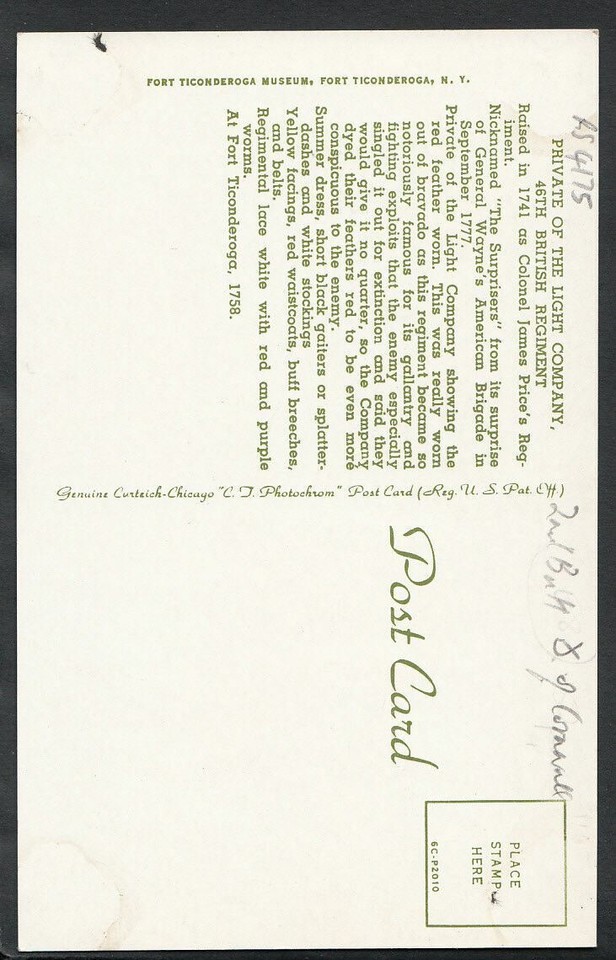 FORT TICONDEROGA MUSEUM, FORT TICONDEROGA, N. Y.
RS 4175
PRIVATE OF THE LIGHT COMPANY,
46TH BRITISH REGIMENT
Raised in 1741 as Colonel James Price's Reg-
iment.
Nicknamed "The Surprisers" from its surprise
of General Wayne's American Brigade in
September 1777.
Private of the Light Company showing the
red feather worn. This was really worn
out of bravado as this regiment became so
notoriously famous for its gallantry and
fighting exploits that the enemy especially
singled it out for extinction and said they
would give it no quarter, so the Company
dyed their feathers red to be even more
conspicuous to the enemy.
Summer dress, short black gaiters or splatter-
dashes and white stockings
Yellow facings, red waistcoats, buff breeches,
and belts.
Regimental lace white with red and purple
worms.
At Fort Ticonderoga, 1758.
Genuine Curteich-Chicago "C. T. Photochrom" Post Card (Reg. U. S. Pat. Off.)
2nd of Cornwall
Post Card
PLACE
STAMP
HERE
6C-P2010